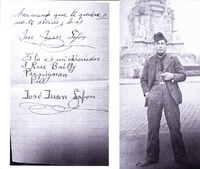 hermano que le quiere y
no te olvida, es
José Juan Safon
Esta es mi dirección
3 Rue Bailly
Perpignan
José Juan Safon